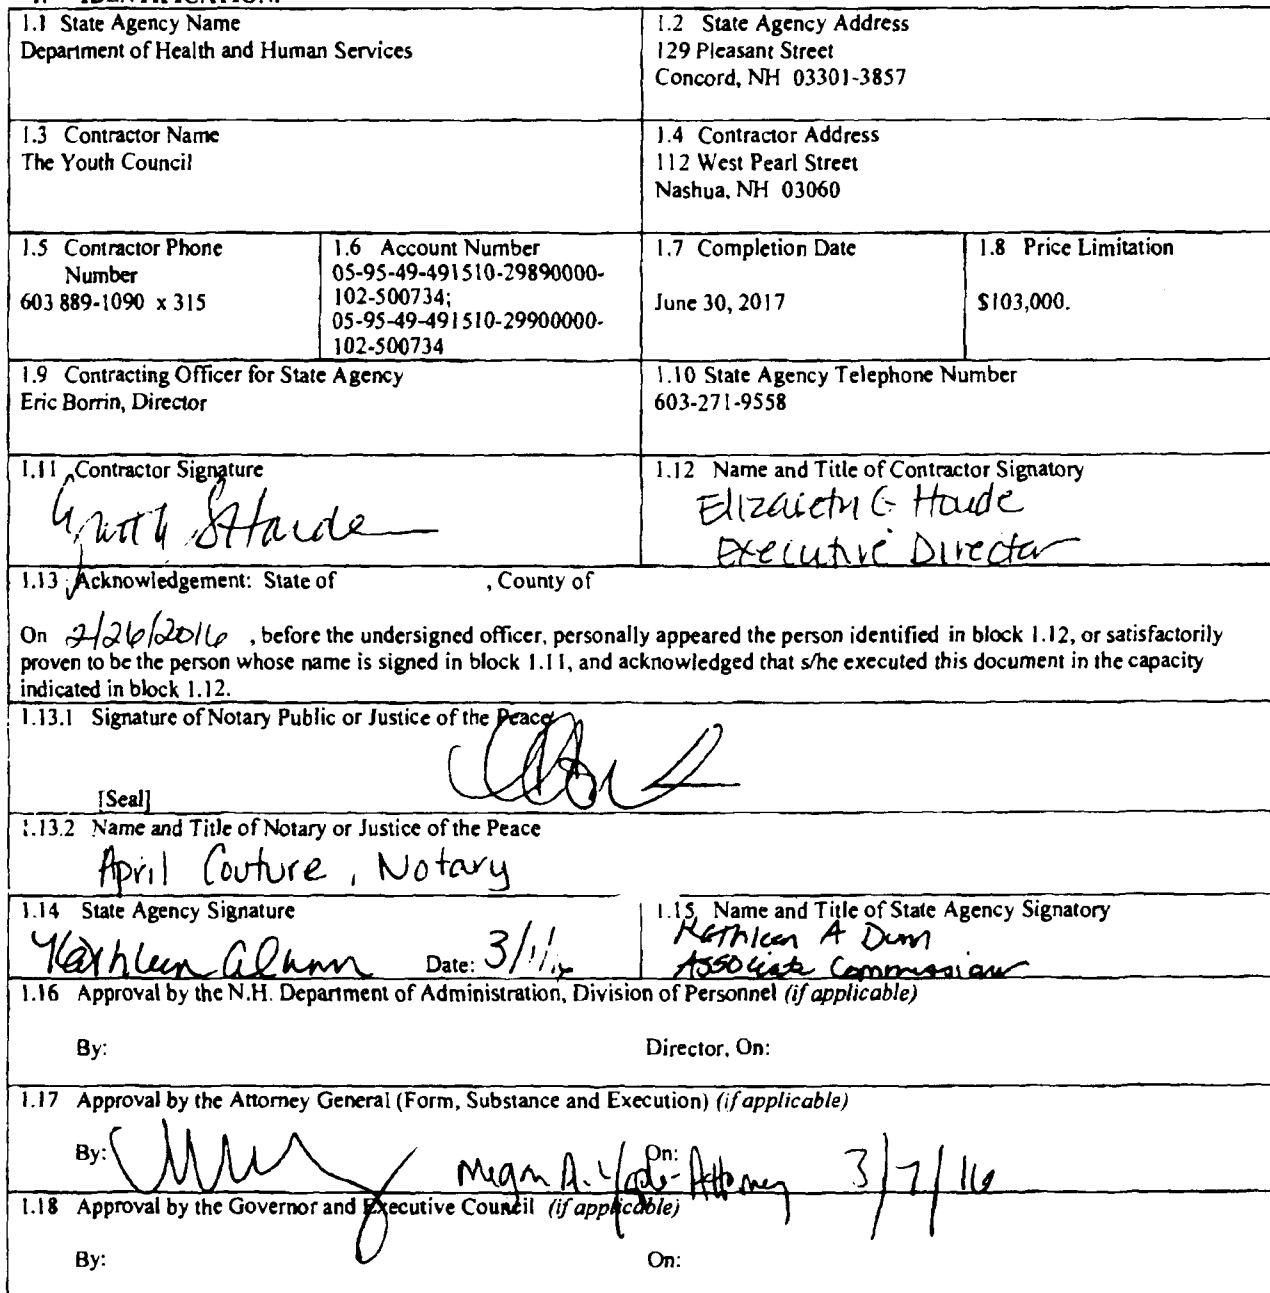 1.1 State Agency Name
Department of Health and Human Services
1.2 State Agency Address
129 Pleasant Street
Concord, NH 03301-3857
1.3 Contractor Name
The Youth Council
1.4 Contractor Address
112 West Pearl Street
Nashua, NH 03060
1.5 Contractor Phone
Number
603 889-1090 x 315
1.6 Account Number
05-95-49-491510-29890000-
102-500734;
05-95-49-491510-29900000-
102-500734
1.7 Completion Date
June 30, 2017
1.8 Price Limitation
$103,000.
1.9 Contracting Officer for State Agency
Eric Borrin, Director
1.10 State Agency Telephone Number
603-271-9558
1.11 Contractor Signature
1.12 Name and Title of Contractor Signatory
Elizabeth G Houde
Executive Director
1.13 Acknowledgement: State of , County of
On 2/26/2016 , before the undersigned officer, personally appeared the person identified in block 1.12, or satisfactorily
proven to be the person whose name is signed in block 1.11, and acknowledged that s/he executed this document in the capacity
indicated in block 1.12.
1.13.1 Signature of Notary Public or Justice of the Peace
[Seal]
1.13.2 Name and Title of Notary or Justice of the Peace
April Couture, Notary
1.14 State Agency Signature
Kathleen A Dunn Date: 3/1/16
1.15 Name and Title of State Agency Signatory
Kathleen A Dunn
Associate Commissioner
1.16 Approval by the N.H. Department of Administration, Division of Personnel (if applicable)
By: Director, On:
1.17 Approval by the Attorney General (Form, Substance and Execution) (if applicable)
By: Megan A. On: Attorney 3/7/16
1.18 Approval by the Governor and Executive Council (if applicable)
By: On: